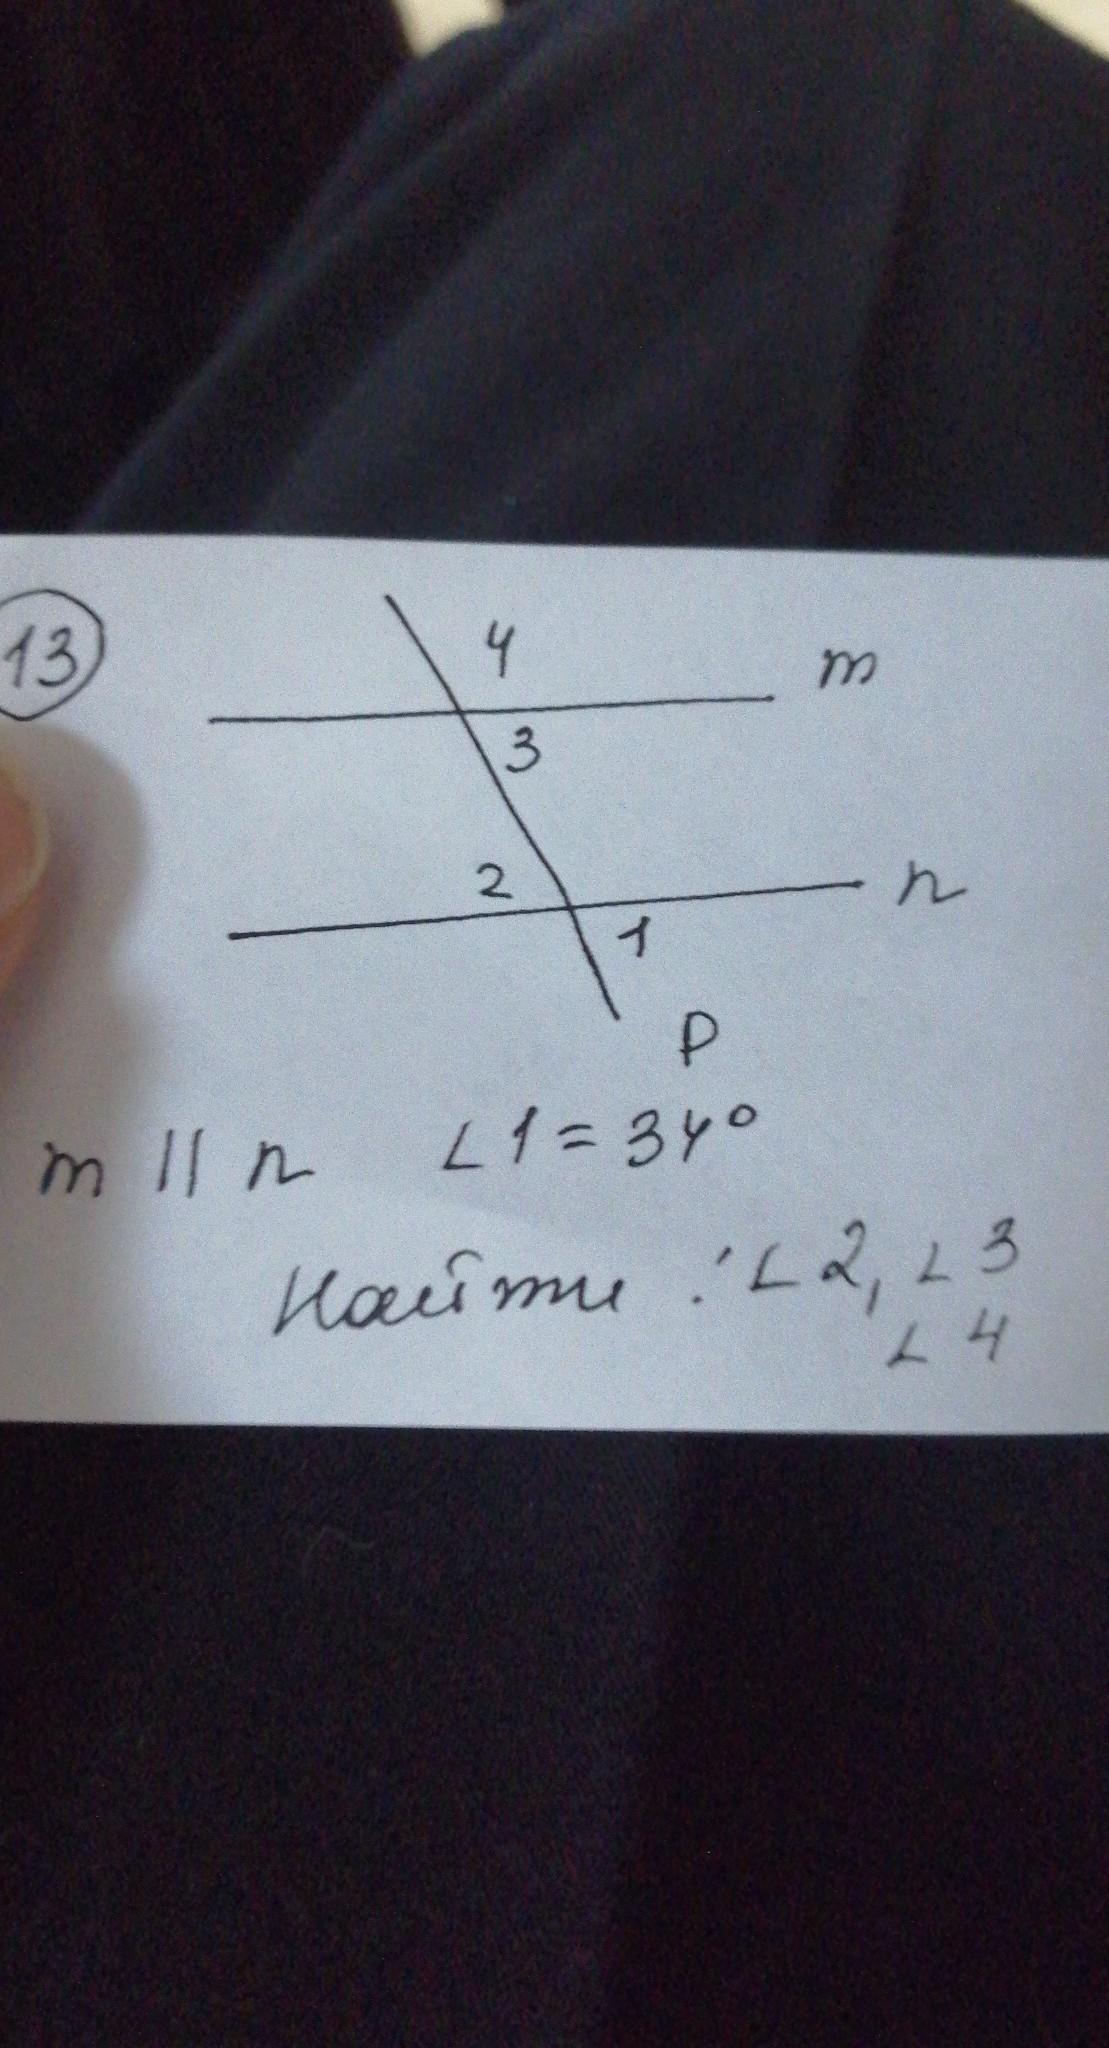 13
4
m
3
2
n
1
p
m || n ∠1 = 34°
Найти: ∠2, ∠3
∠4